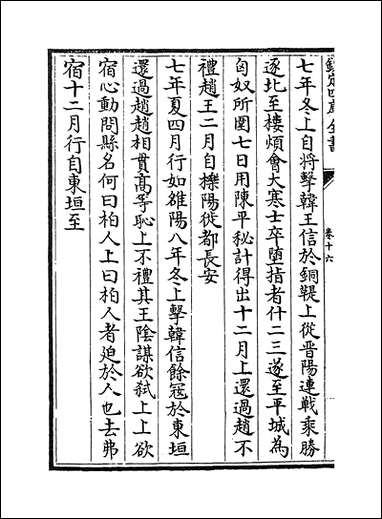 欽定四庫全書
卷十六
七年冬上自將擊韓王信於銅鞮上從晋陽連戰乘勝
逐北至樓煩會大寒士卒墮指者什二三遂至平城為
匈奴所圍七日用陳平秘計得出十二月上還過趙不
禮趙王二月自櫟陽徙都長安
七年夏四月行如雒陽八年冬上擊韓信餘冦於東垣
還過趙趙相貫高等恥上不禮其王陰謀欲弑上上欲
宿心動問縣名何曰柏人上曰柏人者迫於人也去弗
宿十二月行自東垣至